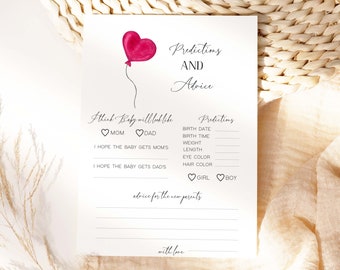 Predictions
AND
Advice
I think Baby will look like
MOM DAD
I HOPE THE BABY GETS MOM'S
I HOPE THE BABY GETS DAD'S
Predictions
BIRTH DATE
BIRTH TIME
WEIGHT
LENGTH
EYE COLOR
HAIR COLOR
GIRL BOY
advice for the new parents
with love